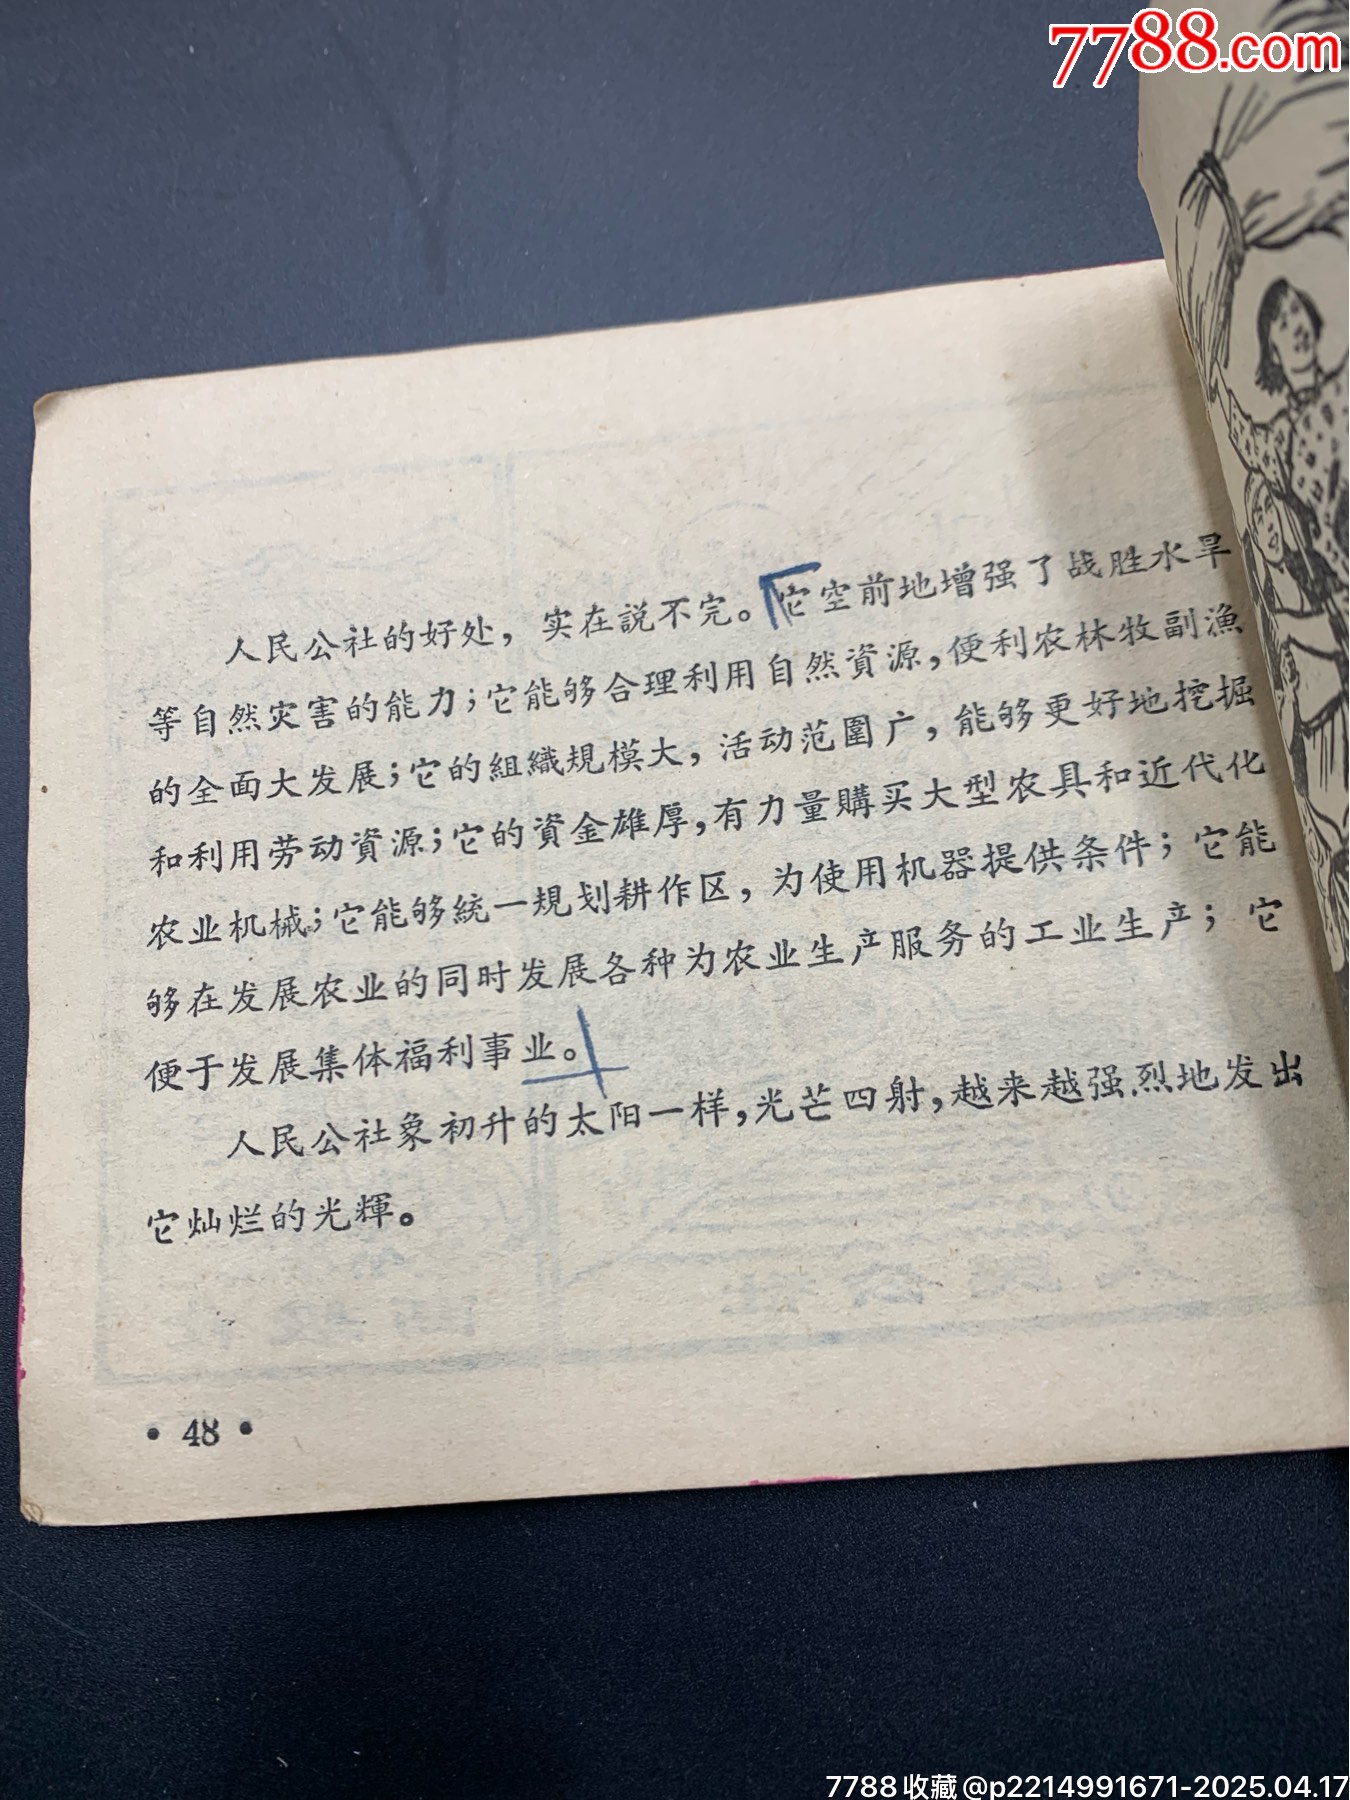 7788.com
人民公社的好处，实在説不完。它空前地增强了战胜水旱
等自然灾害的能力；它能够合理利用自然資源，便利农林牧副漁
的全面大发展；它的組織規模大，活动范圍广，能够更好地挖掘
和利用劳动資源；它的資金雄厚，有力量購买大型农具和近代化
农业机械；它能够統一規划耕作区，为使用机器提供条件；它能
够在发展农业的同时发展各种为农业生产服务的工业生产；它
便于发展集体福利事业。
人民公社象初升的太阳一样，光芒四射，越来越强烈地发出
它灿烂的光輝。
• 48 •
7788收藏@p2214991671-2025.04.17